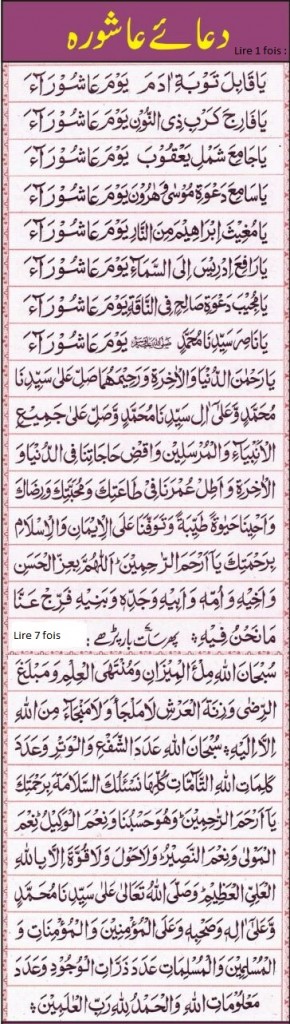 دعائے عاشورہ
Lire 1 fois :
يَا قَابِلَ تَوْبَةِ اٰدَمَ يَوْمَ عَاشُوْرَآءَ
يَا فَارِجَ كَرْبِ ذِي النُّوْنِ يَوْمَ عَاشُوْرَآءَ
يَا جَامِعَ شَمْلِ يَعْقُوْبَ يَوْمَ عَاشُوْرَآءَ
يَا سَامِعَ دَعْوَةِ مُوْسٰى وَهٰرُوْنَ يَوْمَ عَاشُوْرَآءَ
يَا مُغِيْثَ اِبْرَاهِيْمَ مِنَ النَّارِ يَوْمَ عَاشُوْرَآءَ
يَا رَافِعَ اِدْرِيْسَ اِلَى السَّمَآءِ يَوْمَ عَاشُوْرَآءَ
يَا مُجِيْبَ دَعْوَةِ صَالِحٍ فِى النَّاقَةِ يَوْمَ عَاشُوْرَآءَ
يَا نَاصِرَ سَيِّدِنَا مُحَمَّدٍ ﷺ يَوْمَ عَاشُوْرَآءَ
يَا رَحْمٰنَ الدُّنْيَا وَالْاٰخِرَةِ وَرَحِيْمَهُمَا صَلِّ عَلٰى سَيِّدِنَا
مُحَمَّدٍ وَّعَلٰٓى اٰلِ سَيِّدِنَا مُحَمَّدٍ وَّصَلِّ عَلٰى جَمِيْعِ
الْاَنْبِيَآءِ وَالْمُرْسَلِيْنَ وَاقْضِ حَاجَاتِنَا فِى الدُّنْيَا وَ
الْاٰخِرَةِ وَاَطِلْ عُمْرَنَا فِىْ طَاعَتِكَ وَمُحَبَّتِكَ وَرِضَاكَ
وَاَحْيِنَا حَيٰوةً طَيِّبَةً وَّتَوَفَّنَا عَلَى الْاِيْمَانِ وَالْاِسْلَامِ
بِرَحْمَتِكَ يَآ اَرْحَمَ الرَّاحِمِيْنَ اَللّٰهُمَّ بِعِزِّ الْحَسَنِ
وَاَخِيْهِ وَاُمِّهٖ وَاَبِيْهِ وَجَدِّهٖ وَبَنِيْهِ فَرِّجْ عَنَّا
مَا نَحْنُ فِيْهِ ؞ پھر سات بار پڑھے :
Lire 7 fois
سُبْحَانَ اللّٰهِ مِلْءَ الْمِيْزَانِ وَمُنْتَهَى الْعِلْمِ وَمَبْلَغَ
الرِّضٰى وَزِنَةَ الْعَرْشِ لَا مَلْجَأَ وَلَا مَنْجَأَ مِنَ اللّٰهِ
اِلَّا اِلَيْهِ ؞ سُبْحَانَ اللّٰهِ عَدَدَ الشَّفْعِ وَالْوَتْرِ وَعَدَدَ
كَلِمَاتِ اللّٰهِ التَّآمَّاتِ كُلِّهَا نَسْئَلُكَ السَّلَامَةَ بِرَحْمَتِكَ
يَآ اَرْحَمَ الرَّاحِمِيْنَ وَهُوَ حَسْبُنَا وَنِعْمَ الْوَكِيْلُ نِعْمَ
الْمَوْلٰى وَنِعْمَ النَّصِيْرُ وَلَا حَوْلَ وَلَا قُوَّةَ اِلَّا بِاللّٰهِ
الْعَلِيِّ الْعَظِيْمِ وَصَلَّى اللّٰهُ تَعَالٰى عَلٰى سَيِّدِنَا مُحَمَّدٍ
وَّعَلٰٓى اٰلِهٖ وَصَحْبِهٖ وَعَلَى الْمُؤْمِنِيْنَ وَالْمُؤْمِنَاتِ وَ
الْمُسْلِمِيْنَ وَالْمُسْلِمَاتِ عَدَدَ ذَرَّاتِ الْوُجُوْدِ وَعَدَدَ
مَعْلُوْمَاتِ اللّٰهِ وَالْحَمْدُ لِلّٰهِ رَبِّ الْعٰلَمِيْنَ ؞